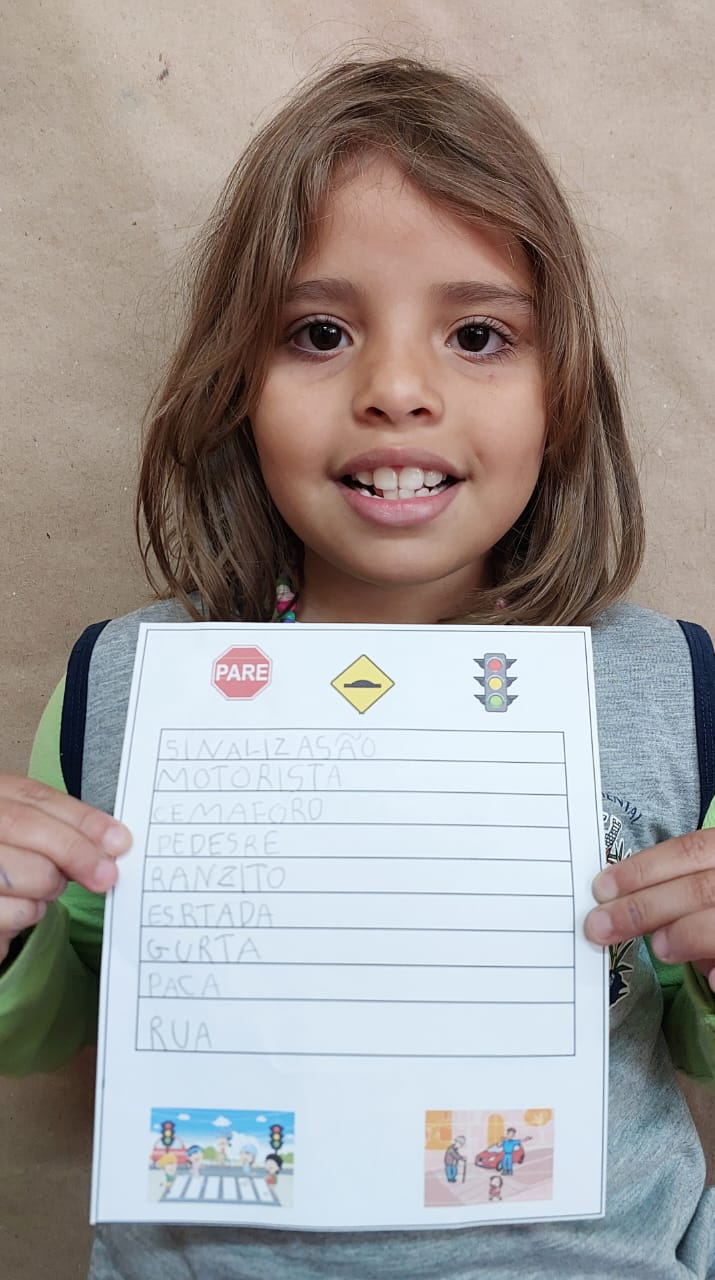 PARE
SINALIZASÃO
MOTORISTA
CEMAFORO
PEDESRE
RANZITO
ESRTADA
GURTA
PACA
RUA